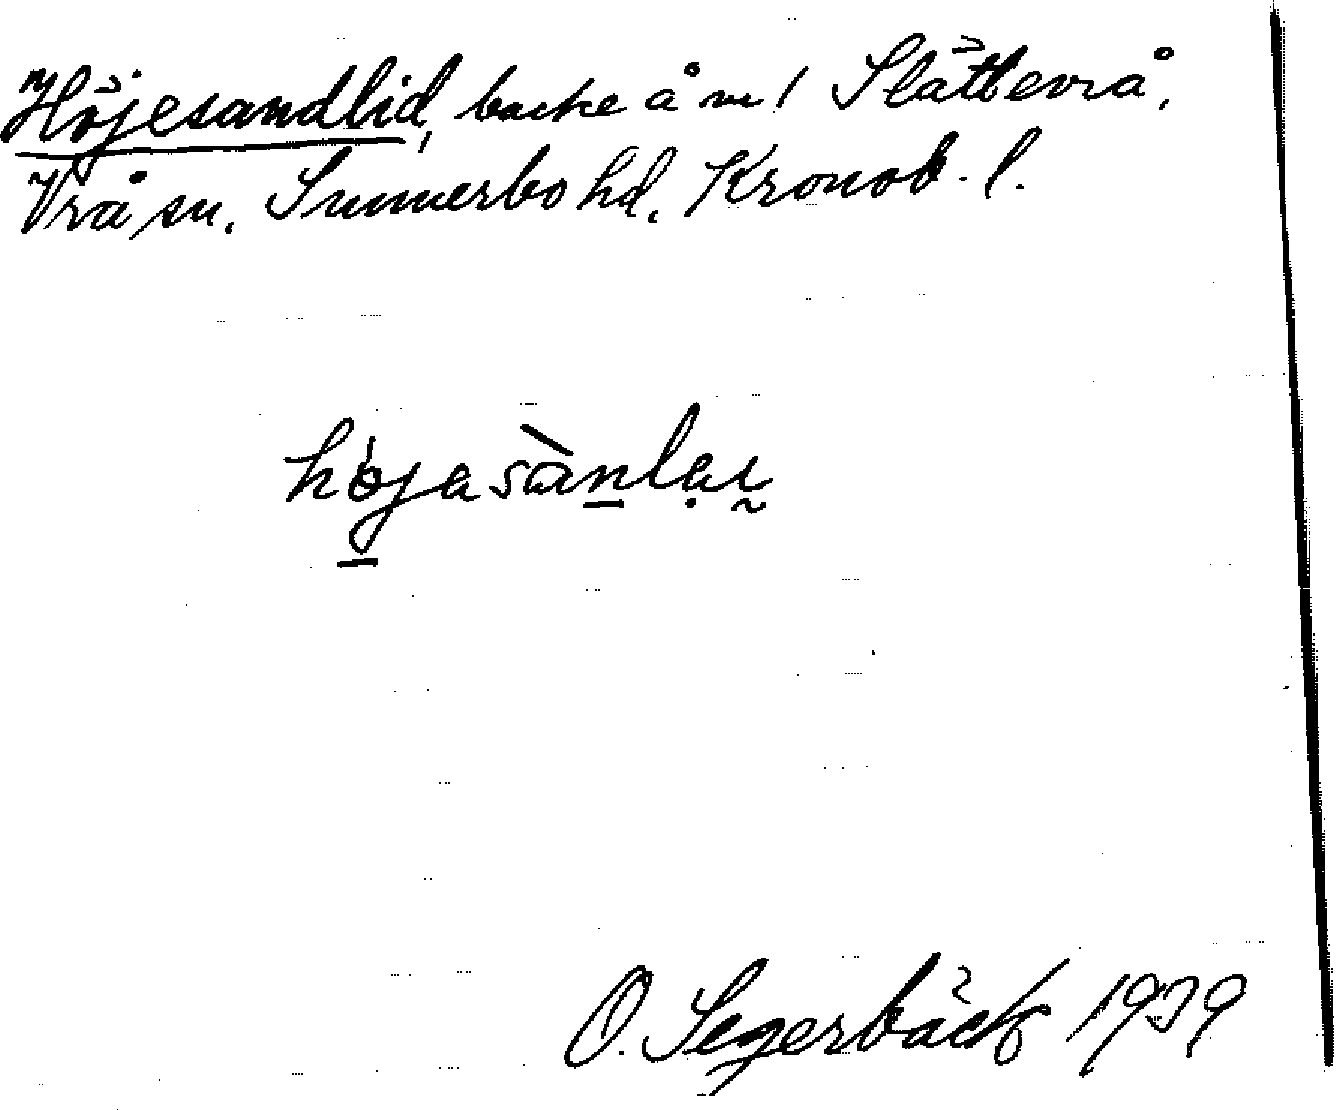 Höjesandlid, backe å vä / Slättevrå,
Vrå sn, Sunnerbo hd, Kronob. l.
höjasànlaı
O. Segerbäck 1939